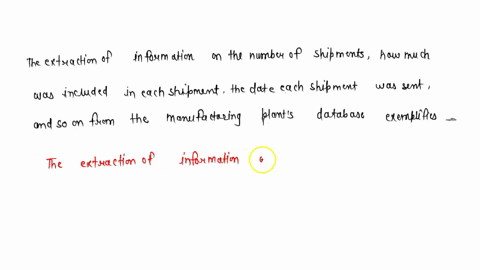 The extraction of information on the number of shipments, how much
was included in each shipment, the date each shipment was sent,
and so on from the manufacturing plant's database exemplifies —
The extraction of information